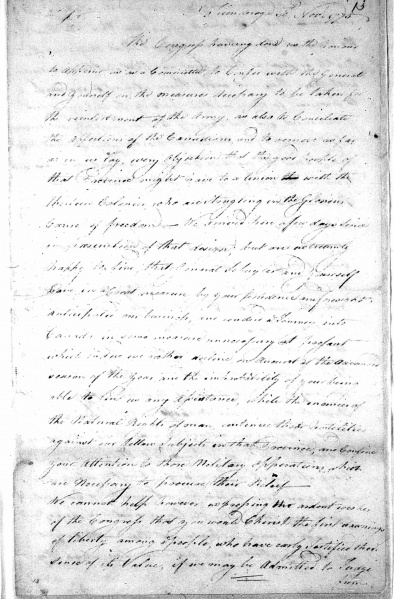 13
Sir Ticonderoga 30 Nov. 1775
The Congress having done us the honour
to appoint us as a Committee to Confer with the General
and yourself on the measures necessary to be taken for
the reinforcement of the Army, as also to Conciliate
the affections of the Canadians and to remove as far
as in us lay, every objection that the good people of
that Province might have to a Union with the
American Colonies who are strugling in the Glorious
Cause of freedom — We arrived here a few days since
in prosecution of that design, but are extremely
happy to find, that General Schuyler and yourself
have in a great measure by your prudence and foresight
anticipated our business, and render a Journey into
Canada in some measure unnecessary at present
which induces us rather decline on Account of the advanced
season of the Year and the improbability of your being
able to give us any Assistance, while the enemies of
the Natural Rights of man continue their hostilities
against our fellow Subjects in that Province, and Confine
your Attention to those Military Operations, which
are Necessary to procure their Relief
We cannot help however expressing the ardent wishes
of the Congress that you would Cherish the first dawnings
of liberty among a people, who have early testified their
sense of its Value, if we may be Admitted to Judge
from